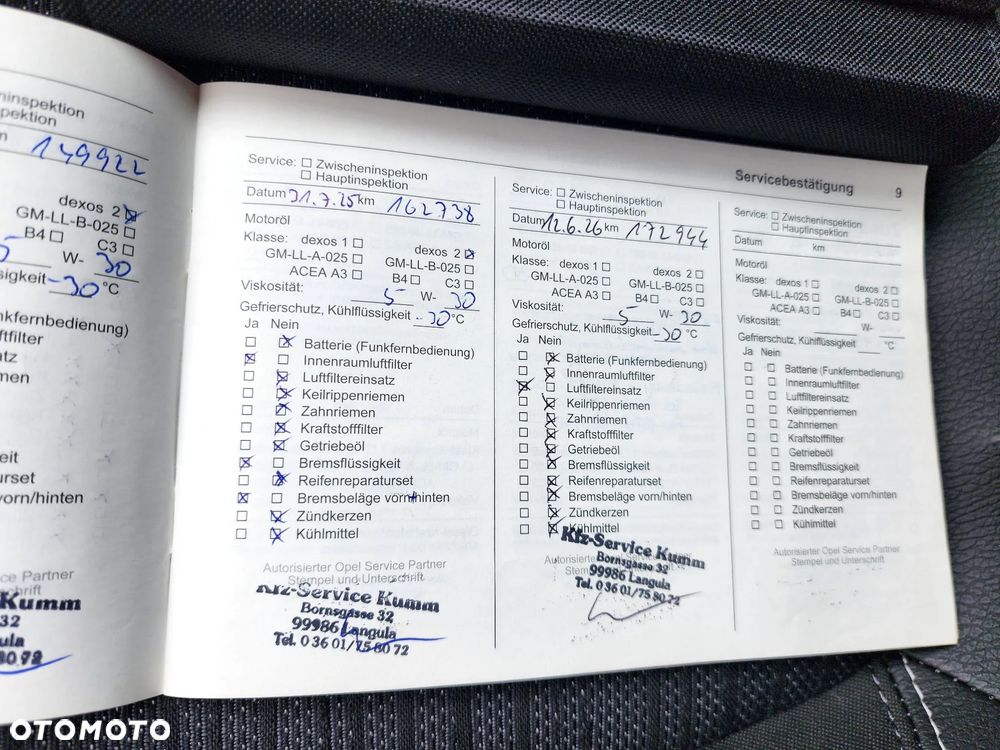 ninspektion
pektion
149922
dexos 2 ☒
GM-LL-B-025 ☐
B4 ☐ C3 ☐
5 W- 30
sigkeit -30 °C
nkfernbedienung)
tfilter
atz
men
eit
urset
vorn/hinten
ce Partner
hrift
Kumm
32
ula
80 72
Servicebestätigung 9
Service: ☐ Zwischeninspektion
☐ Hauptinspektion
Datum 31.7.25 km 162738
Motoröl
Klasse: dexos 1 ☐ dexos 2 ☒
GM-LL-A-025 ☐ GM-LL-B-025 ☐
ACEA A3 ☐ B4 ☐ C3 ☐
Viskosität: 5 W- 30
Gefrierschutz, Kühlflüssigkeit -30 °C
Ja Nein
☐ ☒ Batterie (Funkfernbedienung)
☒ ☐ Innenraumluftfilter
☐ ☒ Luftfiltereinsatz
☐ ☒ Keilrippenriemen
☐ ☒ Zahnriemen
☐ ☒ Kraftstofffilter
☐ ☒ Getriebeöl
☒ ☐ Bremsflüssigkeit
☐ ☒ Reifenreparaturset
☒ ☐ Bremsbeläge vorn+hinten
☐ ☒ Zündkerzen
☐ ☒ Kühlmittel
Autorisierter Opel Service Partner
Stempel und Unterschrift
Kfz-Service Kumm
Bornsgasse 32
99986 Langula
Tel. 0 36 01/75 80 72
Service: ☐ Zwischeninspektion
☐ Hauptinspektion
Datum 12.6.26 km 172944
Motoröl
Klasse: dexos 1 ☐ dexos 2 ☐
GM-LL-A-025 ☐ GM-LL-B-025 ☐
ACEA A3 ☐ B4 ☐ C3 ☐
Viskosität: 5 W- 30
Gefrierschutz, Kühlflüssigkeit -30 °C
Ja Nein
☐ ☒ Batterie (Funkfernbedienung)
☐ ☒ Innenraumluftfilter
☒ ☐ Luftfiltereinsatz
☐ ☒ Keilrippenriemen
☐ ☒ Zahnriemen
☐ ☒ Kraftstofffilter
☐ ☒ Getriebeöl
☐ ☒ Bremsflüssigkeit
☐ ☒ Reifenreparaturset
☐ ☒ Bremsbeläge vorn/hinten
☐ ☒ Zündkerzen
☐ ☒ Kühlmittel
Kfz-Service Kumm
Bornsgasse 32
99986 Langula
Tel. 0 36 01/75 80 72
Service: ☐ Zwischeninspektion
☐ Hauptinspektion
Datum km
Motoröl
Klasse: dexos 1 ☐ dexos 2 ☐
GM-LL-A-025 ☐ GM-LL-B-025 ☐
ACEA A3 ☐ B4 ☐ C3 ☐
Viskosität: W-
Gefrierschutz, Kühlflüssigkeit °C
Ja Nein
☐ ☐ Batterie (Funkfernbedienung)
☐ ☐ Innenraumluftfilter
☐ ☐ Luftfiltereinsatz
☐ ☐ Keilrippenriemen
☐ ☐ Zahnriemen
☐ ☐ Kraftstofffilter
☐ ☐ Getriebeöl
☐ ☐ Bremsflüssigkeit
☐ ☐ Reifenreparaturset
☐ ☐ Bremsbeläge vorn/hinten
☐ ☐ Zündkerzen
☐ ☐ Kühlmittel
Autorisierter Opel Service Partner
Stempel und Unterschrift
OTOMOTO